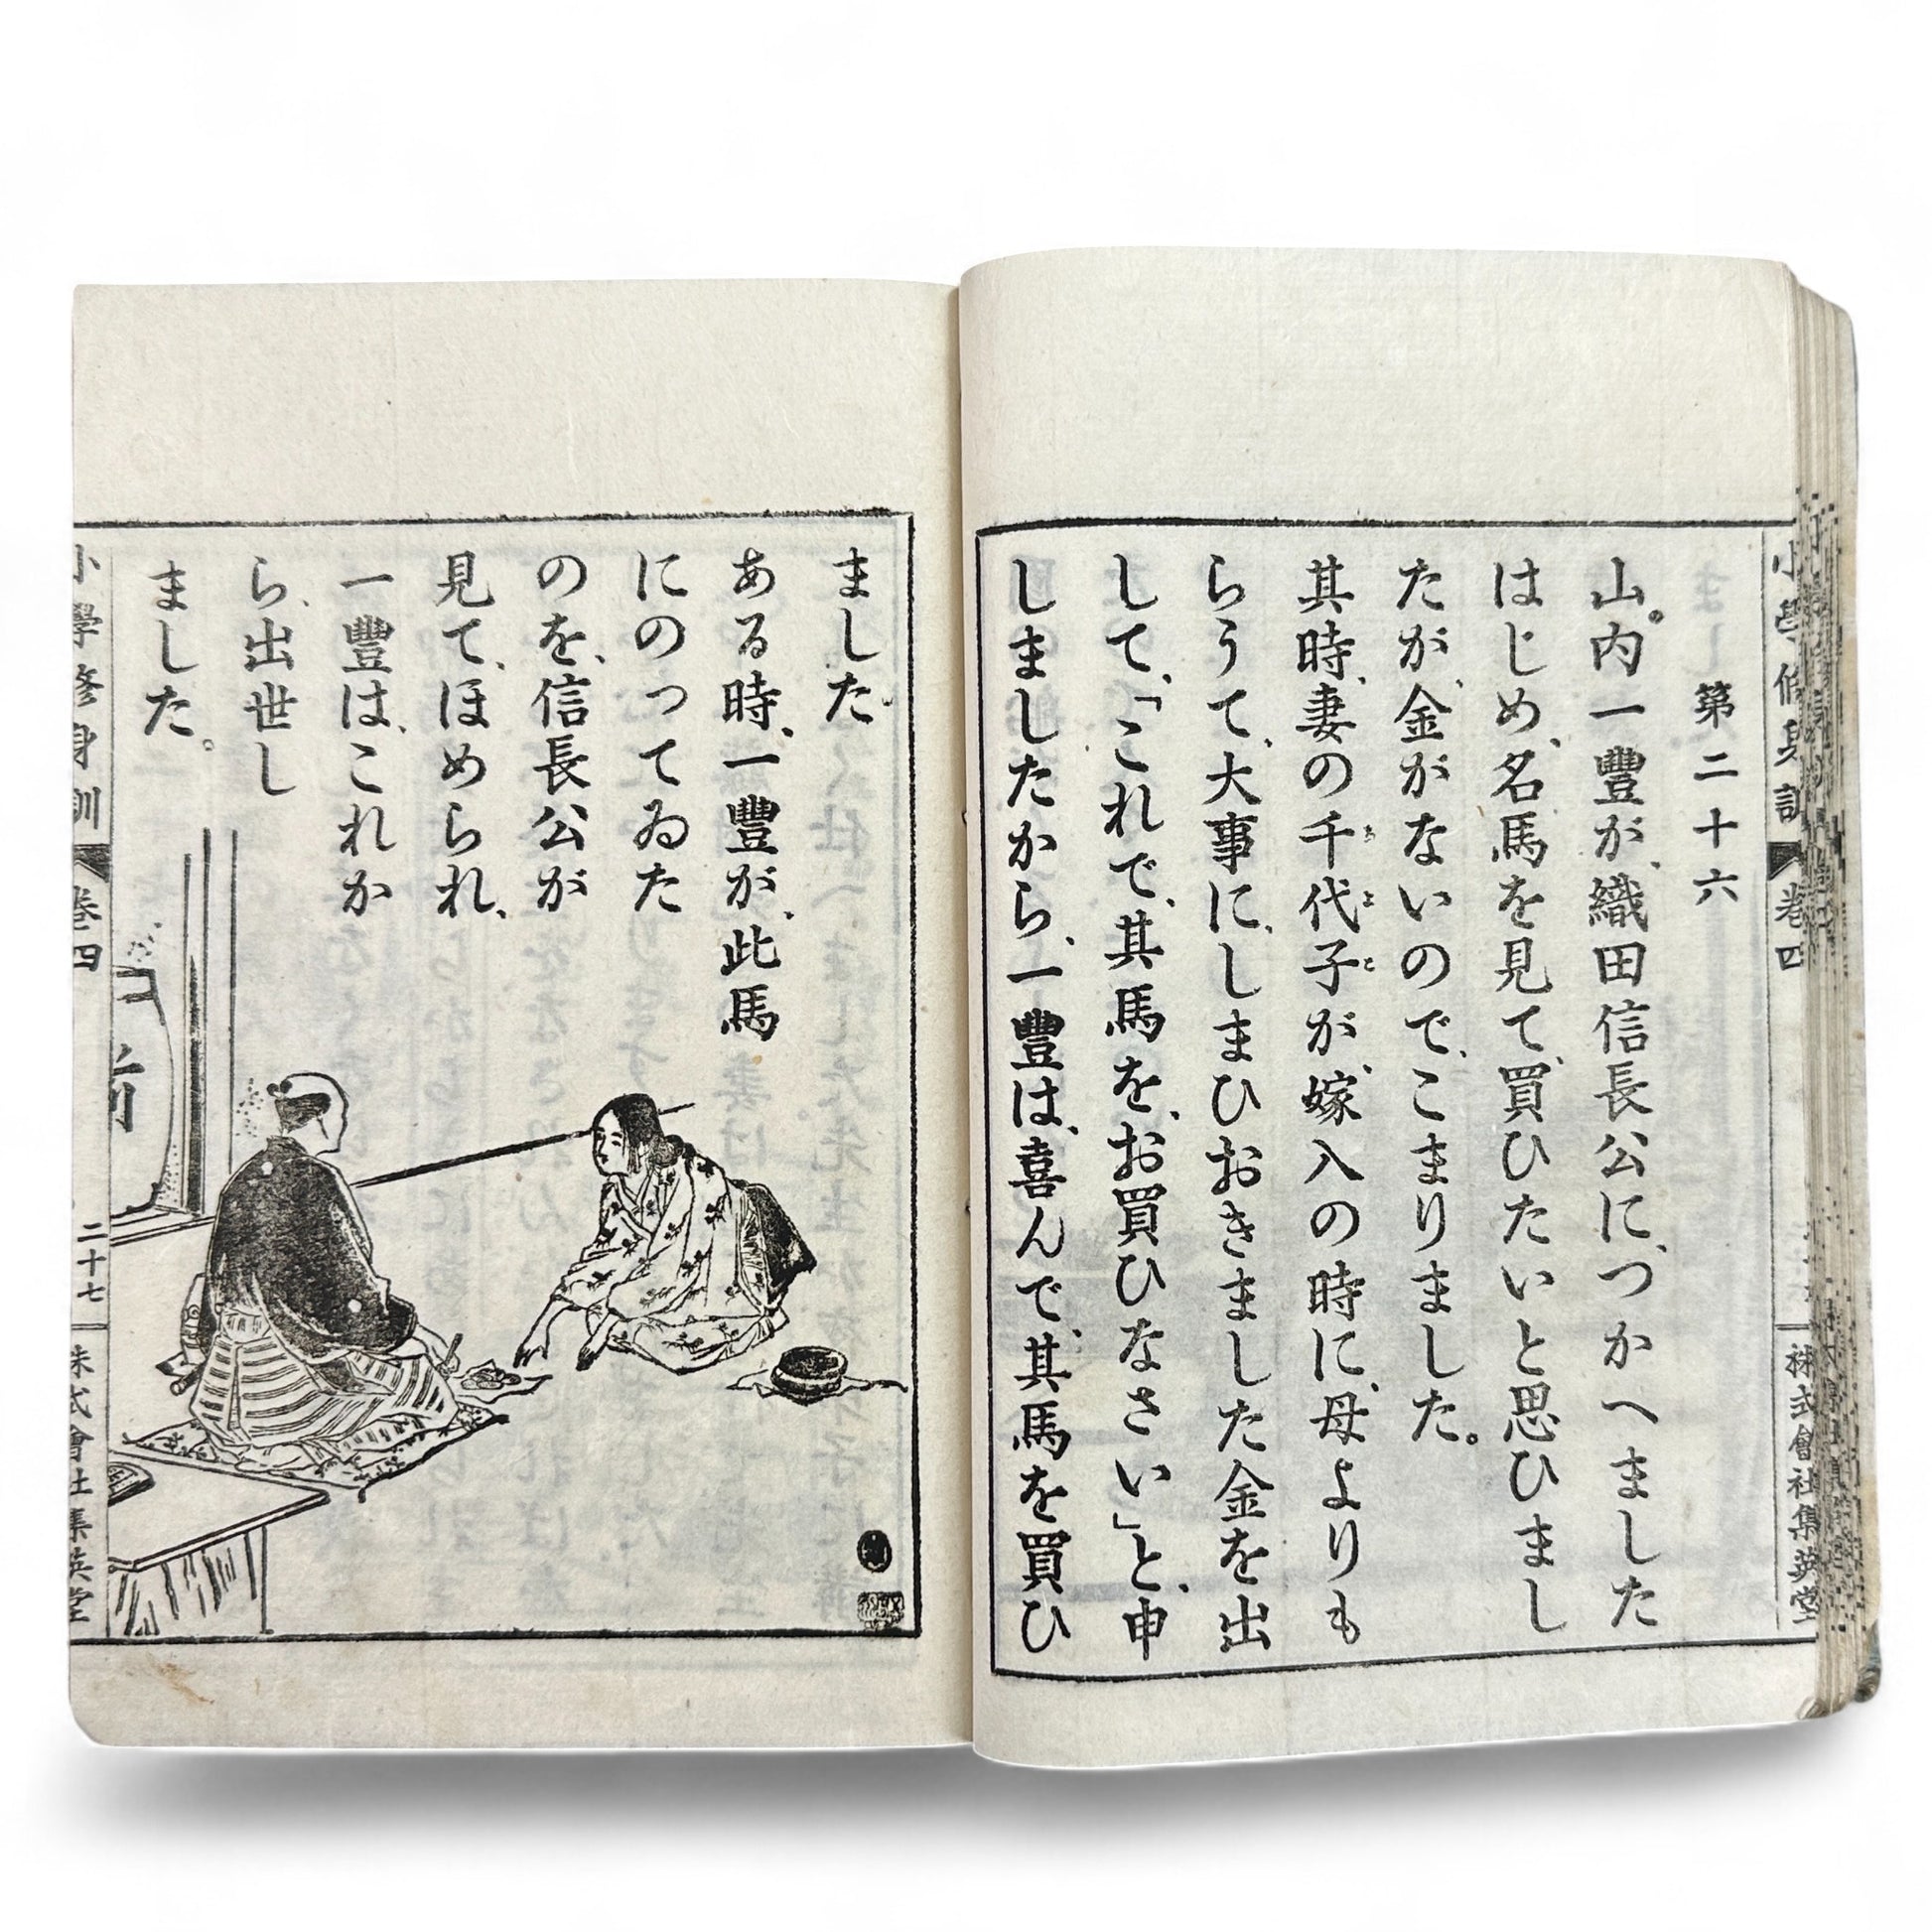 小學修身訓 卷四 株式會社集英堂
第二十六
山。内一豐が、織田信長公に、つかへました
はじめ、名馬を見て、買ひたいと思ひまし
たが、金がないので、こまりました。
其時、妻の千代子が、嫁入の時に、母よりも
ちよこ
らうて、大事に、しまひおきました金を出
して、「これで、其馬を、お買ひなさい」と、申
しましたから、一豐は、喜んで、其馬を買ひ
ました。
ある時、一豐が、此馬
にのつてゐた
のを、信長公が
見て、ほめられ、
一豐は、これか
ら、出世し
ました。
小學修身訓 卷四 二十七 株式會社集英堂